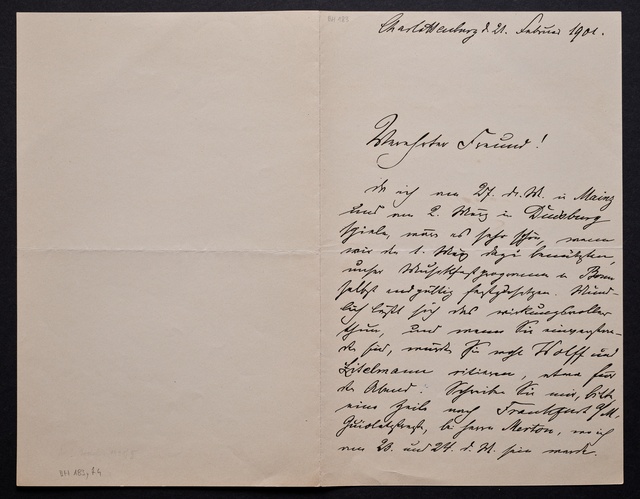 BH 182
Charlottenburg d. 21. Februar 1901.
Verehrter Freund!
da ich am 27. ds. M. in Mainz
und am 2. März in Duisburg
spiele, wäre es sehr schön, wenn
wir den 1. März dazu benützten,
unser Musikfestprogramm in Bonn
selbst endgültig festzusetzen. Münd-
lich läßt sich das wirkungsvoller
thun, und wenn Sie einverstan-
den sind, würden Sie wohl Wolff und
Zitelmann citieren, etwa für
den Abend? Schreiben Sie mir, bitte
eine Zeile nach Frankfurt a/M.
Guiolettstraße, bei Herrn Merton, wo ich
am 23. und 24. d. M. sein werde.
BH 182, 84